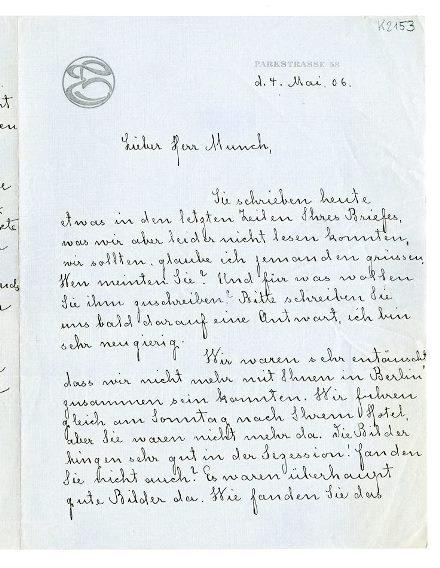 K2153
PARKSTRASSE 58
d. 4. Mai. 06.
Lieber Herr Munch,
Sie schrieben heute
etwas in den letzten Zeilen Ihres Briefes,
was wir aber leider nicht lesen konnten,
wir sollten, glaube ich jemanden grüssen,
Wen meinten Sie? Und für was wollen
Sie ihm zuschreiben? Bitte schreiben Sie
uns bald darauf eine Antwort, ich bin
sehr neugierig.
Wir waren sehr entäuscht
dass wir nicht mehr mit Ihnen in Berlin
zusammen sein konnten. Wir fuhren
gleich am Sonntag nach Ihrem Hotel,
aber Sie waren nicht mehr da. Die Bilder
hingen sehr gut in der Sezession! fanden
Sie nicht auch? Es waren überhaupt
gute Bilder da. Wie fanden Sie das